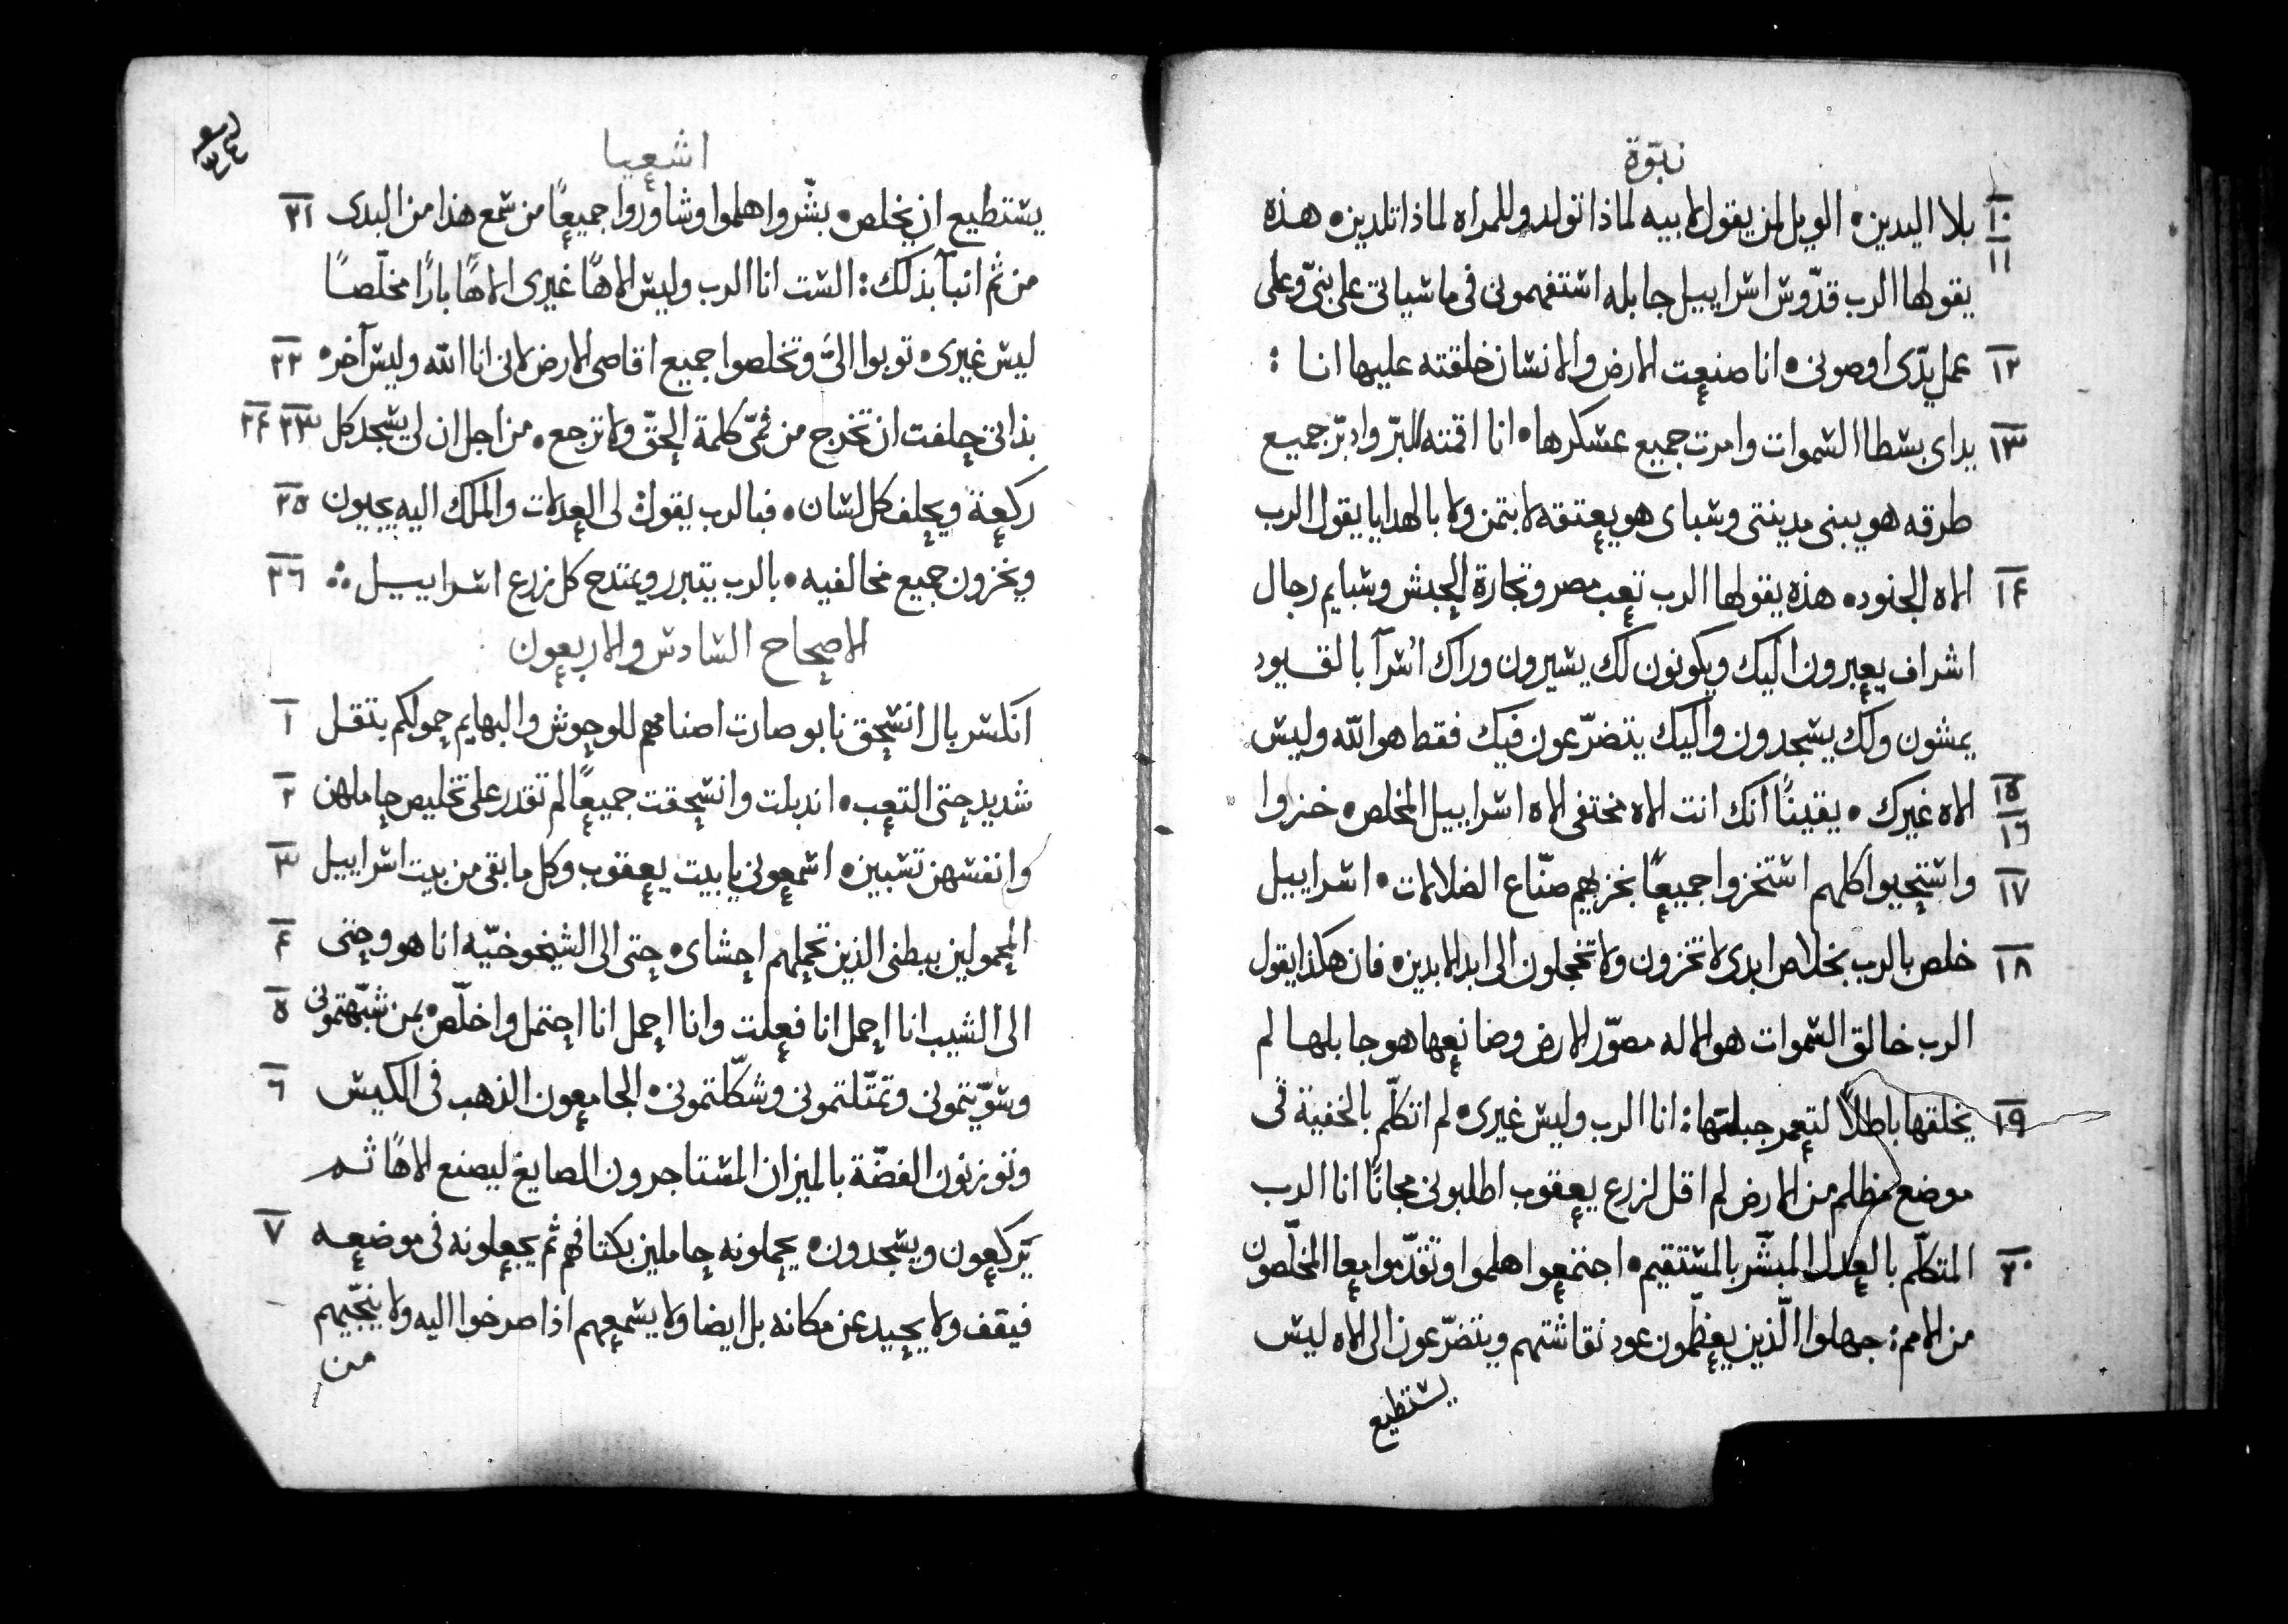 نبوّة
١٠ بلا اليدين • الويل لمن يقول لابيه لماذا تولد وللمراه لماذا تلدين • هذه
١١ يقولها الرب قدّوس اسراييل جابله استفهمونى فى ما سياتى على بنىّ وعلى
١٢ عمل يدّى اوصونى • انا صنعت الارض والانسان خلقته عليها انا :
١٣ يداى بسطا السموات وامرت جميع عسكرها • انا اقمته للبرّ وادبّر جميع
طرقه هو يبنى مدينتى وسباى هو يعتقه لا بتمن ولا بالهدايا يقول الرب
١٤ الاه الجنود • هذه يقولها الرب تعب مصر وتجارة الحبش وسبايم رجال
اشراف يعبرون اليك ويكونون لك يسيرون وراك اسرآ بالقيود
يمشون ولك يسجدون واليك يتضرّعون فيك فقط هو الله وليس
١٥ الاه غيرك • يقينًا انك انت الاه مختفى الاه اسراييل المخلص • خزوا
١٦
١٧ واستحيوا كلهم استخزوا جميعًا بخزيهم صنّاع الضلالات • اسراييل
١٨ خلص بالرب بخلاص ابدى لا تخزون ولا تخجلون الى ابد الابدين • فان هكذا يقول
الرب خالق السموات هو الاله مصوّر الارض وصانعها هو جابلها لم
١٩ يخلقها باطلاً لتعمر جبلتها : انا الرب وليس غيرى • لم اتكلّم بالخفية فى
موضع مظلم من الارض لم اقل لزرع يعقوب اطلبونى مجانًا انا الرب
٢٠ المتكلّم بالعدل المبشّر بالمستقيم • اجتمعوا هلموا وتقدّموا معا المخلّصون
من الامم : جهلوا الّذين يعظّمون عود نقاشتهم ويتضرّعون الى الاه ليس
يستطيع
اشعيا
يستطيع ان يخلص • بشّروا هلموا وشاوروا جميعًا من سمع هذا من البدى ٢١
من ثم انبآ بذلك : الست انا الرب وليس الاهًا غيرى الاهًا بارًا مخلّصًا
ليس غيرى • توبوا الىّ وتخلصوا جميع اقاصى الارض لانى انا الله وليس آخر • ٢٢
بذاتى حلفت ان تخرج من فمّى كلمة الحقّ ولا ترجع • من اجل ان لى يسجد كل ٢٣ ٢٤
ركعة ويحلف كل لسان • فبالرب يقول لى العدلات والملك اليه يجيون ٢٥
ويخزون جميع مخالفيه • بالرب يتبرر ويمتدح كل زرع اسراييل ٢٦
الاصحاح السادس والاربعون
انكسر بال انسحق نابو صارت اصنامهم للوحوش والبهايم حمولكم بتقل ١
شديد حتى التعب • اندبلت وانسحقت جميعًا لم تقدر على تخليص حاملهن ٢
وانفسهن تسبين • اسمعونى يا بيت يعقوب وكل ما بقى من بيت اسراييل ٣
المحمولين ببطنى الذين تحملهم احشاى • حتى الى الشيخوخيّه انا هو وحتى ٤
الى الشيب انا احمل انا فعلت وانا احمل انا احتمل واخلّص • بمن شبّهتمونى ٥
وسوّيتمونى وتمتّلتمونى وشكّلتمونى • الجامعون الذهب فى الكيس ٦
وتوزنون الفضّة بالميزان المستاجرون الصايغ ليصنع الاهًا ثم
يَركعون ويسجدون • يحملونه حاملين بكتافهم ثم يجعلونه فى موضعه ٧
فيقف ولا يحيد عن مكانه بل ايضا ولا يسمعهم اذا صرخوا اليه ولا ينجّيهم
من